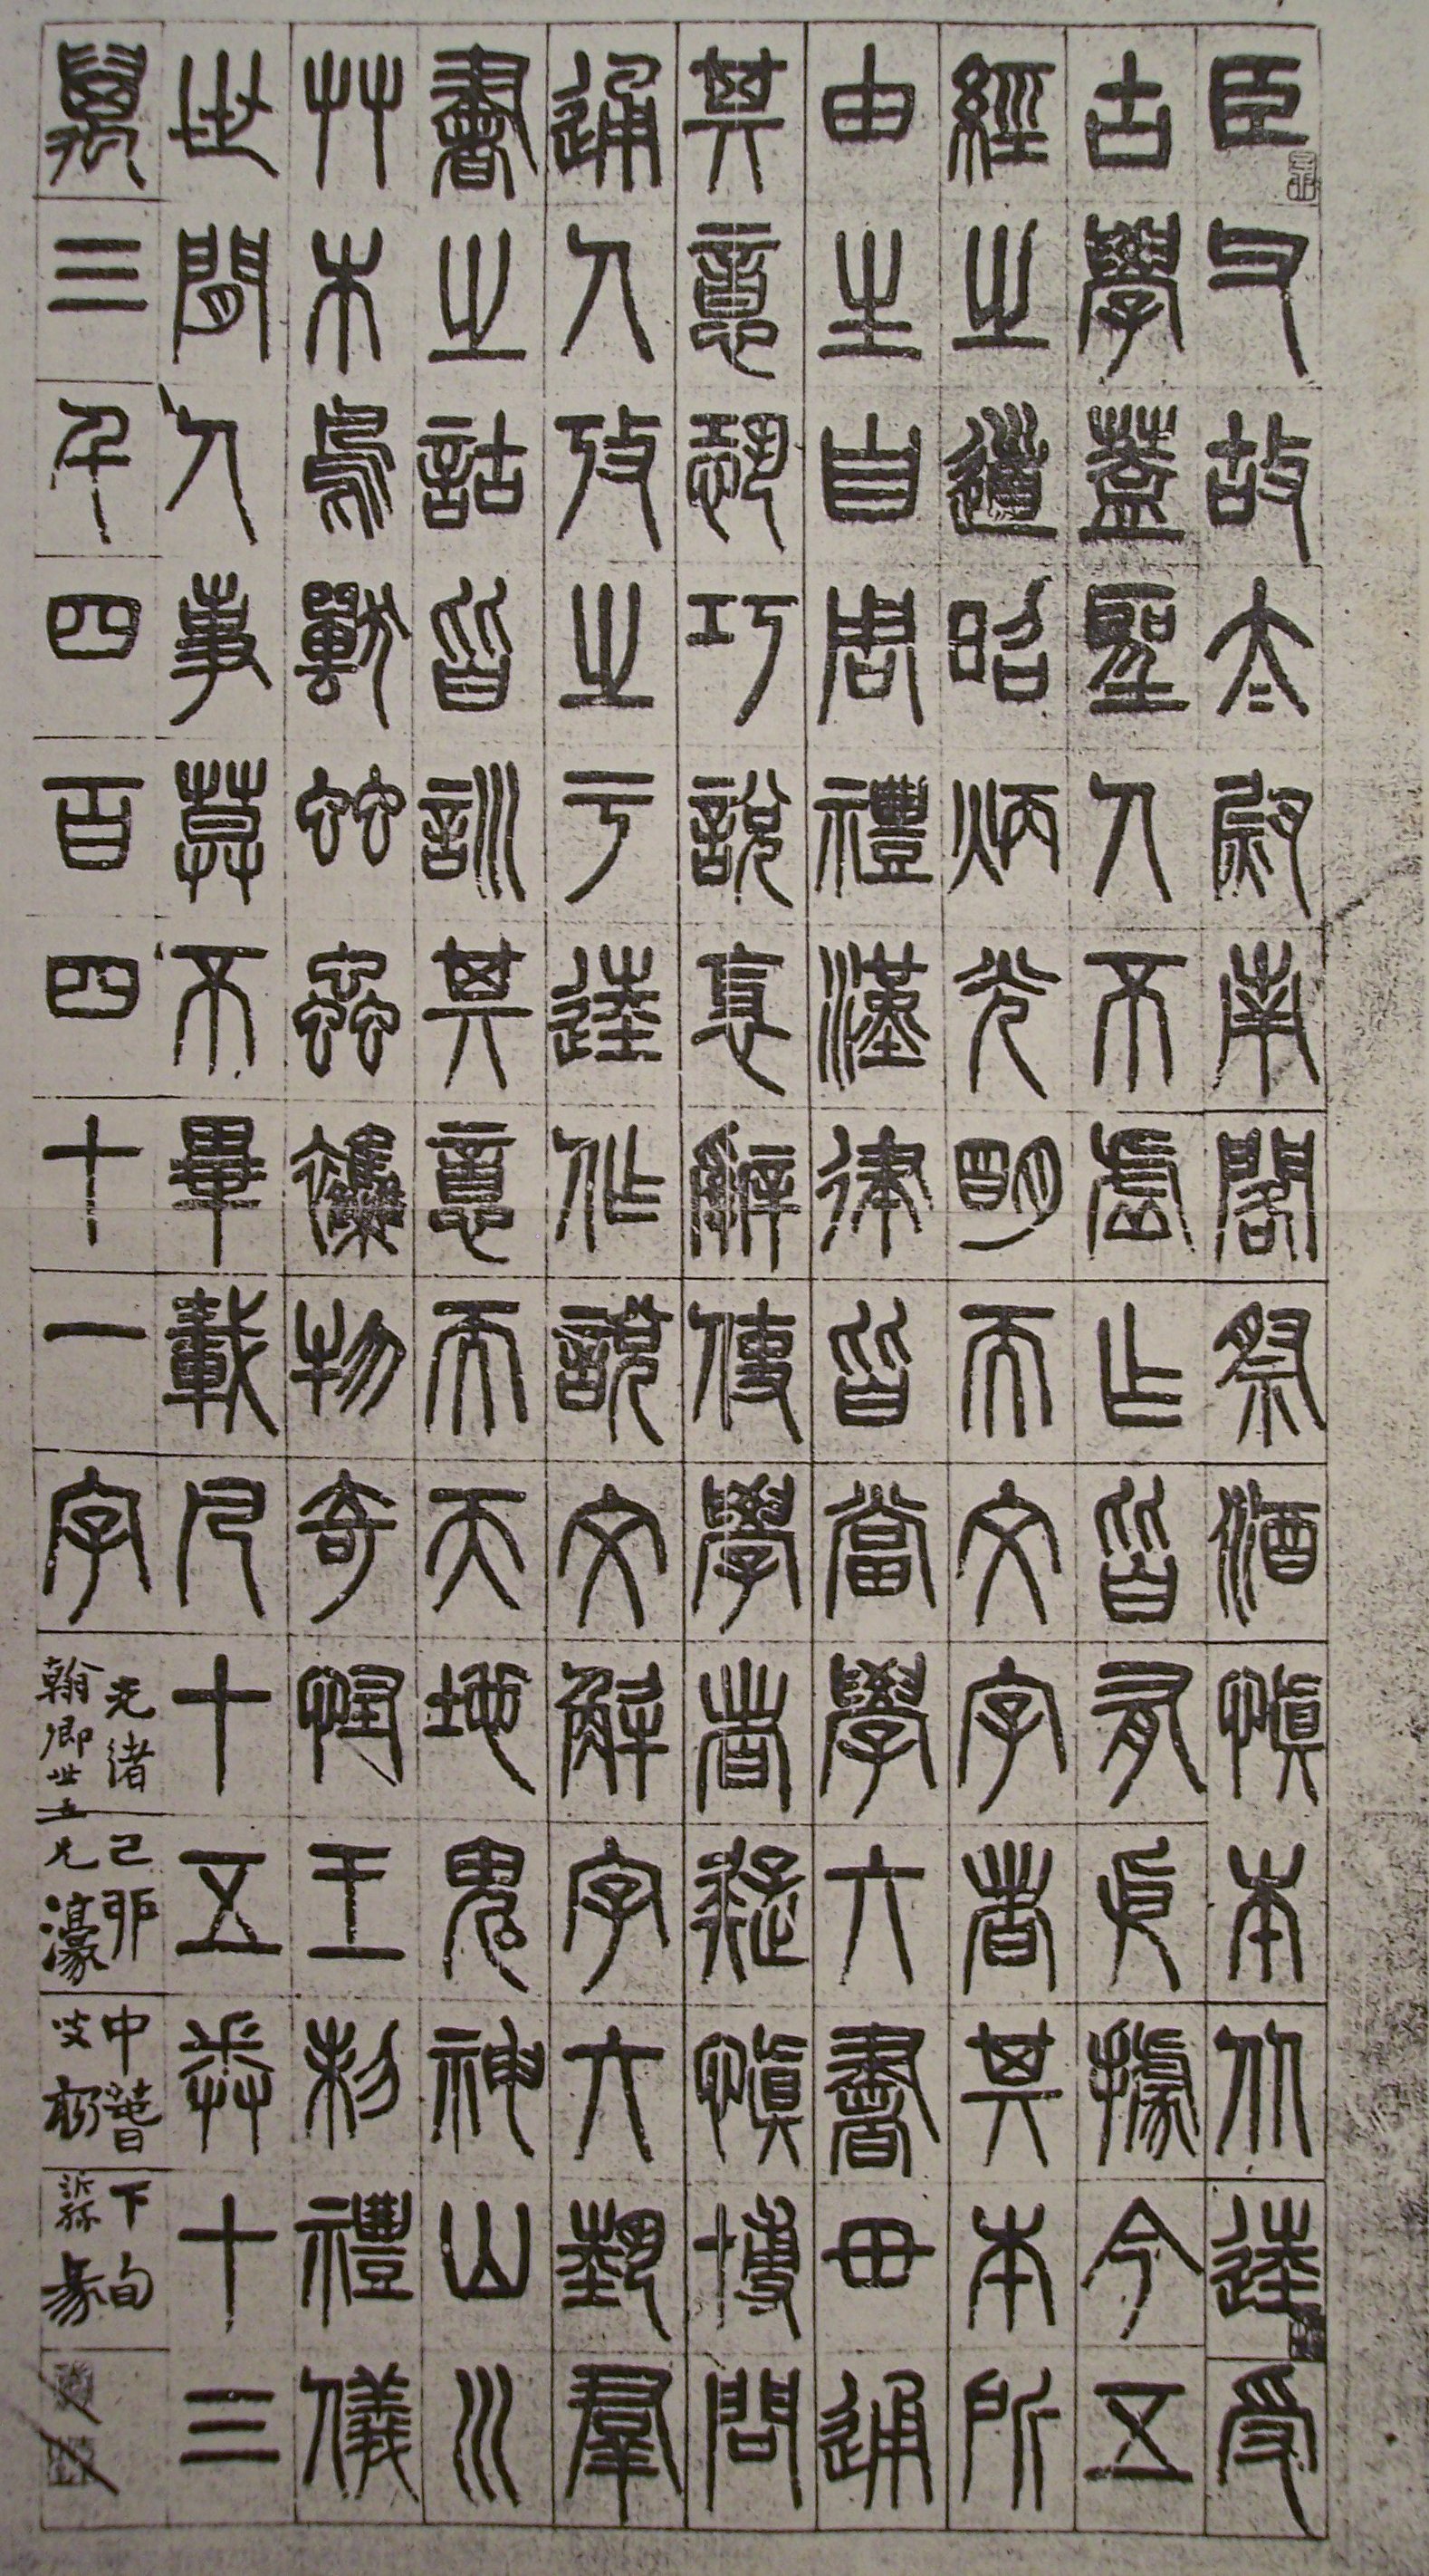 臣父故太尉南閣祭酒慎本从逵受
古學蓋聖人不妄作皆有依據今五
經之道昭炳光明而文字者其本所
由生自周禮漢律皆當學六書毌通
其意恐巧說衺辭使學者疑慎博問
通人攷之于逵作說文解字六埶羣
書之詁皆訓其意而天地鬼神山川
艸木鳥獸䖵蟲襍物奇怪王制禮儀
世間人事莫不畢載凡十五卷十三
萬三千四百四十一字
光緒己卯中萅下旬
翰卿世五兄濠叟楊沂孫篆